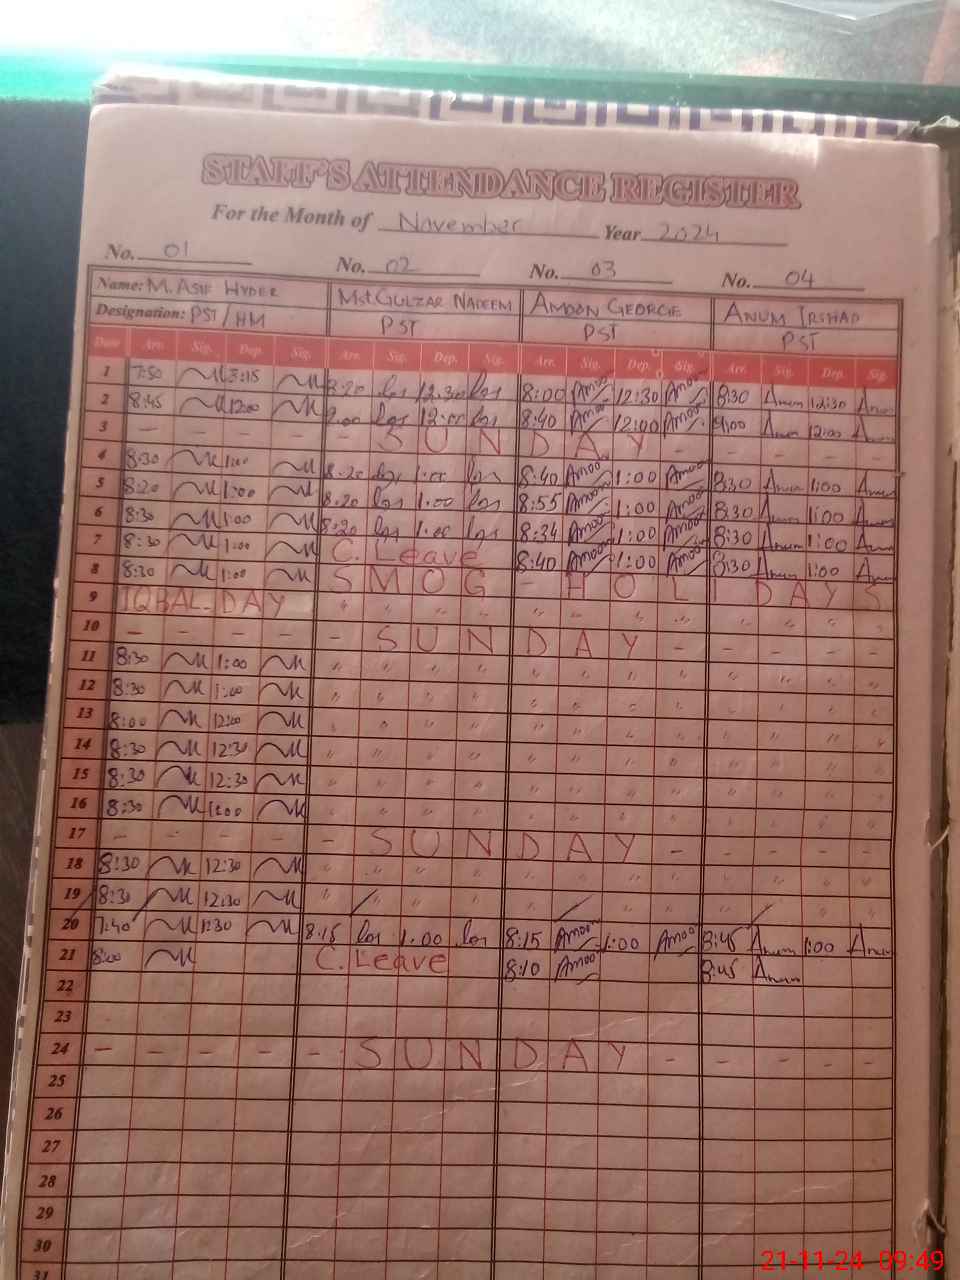 STAFF'S ATTENDANCE REGISTER
For the Month of November Year 2024
No. 01 No. 02 No. 03 No. 04
Name: M. ASIF HYDER Mst. GULZAR NADEEM AMOON GEORGE ANUM IRSHAD
Designation: PST / HM PST PST PST
Date Arr. Sig. Dep. Sig. Arr. Sig. Dep. Sig. Arr. Sig. Dep. Sig. Arr. Sig. Dep. Sig.
1 7:50 3:15 8:20 12:30 8:00 Amoon 12:30 Amoon 8:30 Anum 12:30 Anum
2 8:45 12:00 9:00 12:00 8:40 Amoon 12:00 Amoon 9:00 Anum 12:00 Anum
3 - - - - - S U N D A Y - - - - -
4 8:30 1:00 8:20 1:00 8:40 Amoon 1:00 Amoon 8:30 Anum 1:00 Anum
5 8:20 1:00 8:20 1:00 8:55 Amoon 1:00 Amoon 8:30 Anum 1:00 Anum
6 8:30 1:00 8:20 1:00 8:34 Amoon 1:00 Amoon 8:30 Anum 1:00 Anum
7 8:30 1:00 C. Leave 8:40 Amoon 1:00 Amoon 8:30 Anum 1:00 Anum
8 8:30 1:00 S M O G - H O L I D A Y S
9 IQBAL - DAY " " " " " " " " " " " "
10 - - - - - S U N D A Y - - - - -
11 8:30 1:00 " " " " " " " " " " " "
12 8:30 1:00 " " " " " " " " " " " "
13 8:00 12:00 " " " " " " " " " " " "
14 8:30 12:30 " " " " " " " " " " " "
15 8:30 12:30 " " " " " " " " " " " "
16 8:30 1:00 " " " " " " " " " " " "
17 - - - - - S U N D A Y - - - - -
18 8:30 12:30 " " " " " " " " " " " "
19 8:30 12:30 " " " " " " " " " "
20 7:40 1:30 8:15 1:00 8:15 Amoon 1:00 Amoon 8:45 Anum 1:00 Anum
21 8:00 C. Leave 8:10 Amoon 8:45 Anum
22
23
24 - - - - - S U N D A Y - - - - -
25
26
27
28
29
30
31
21-11-24 09:49